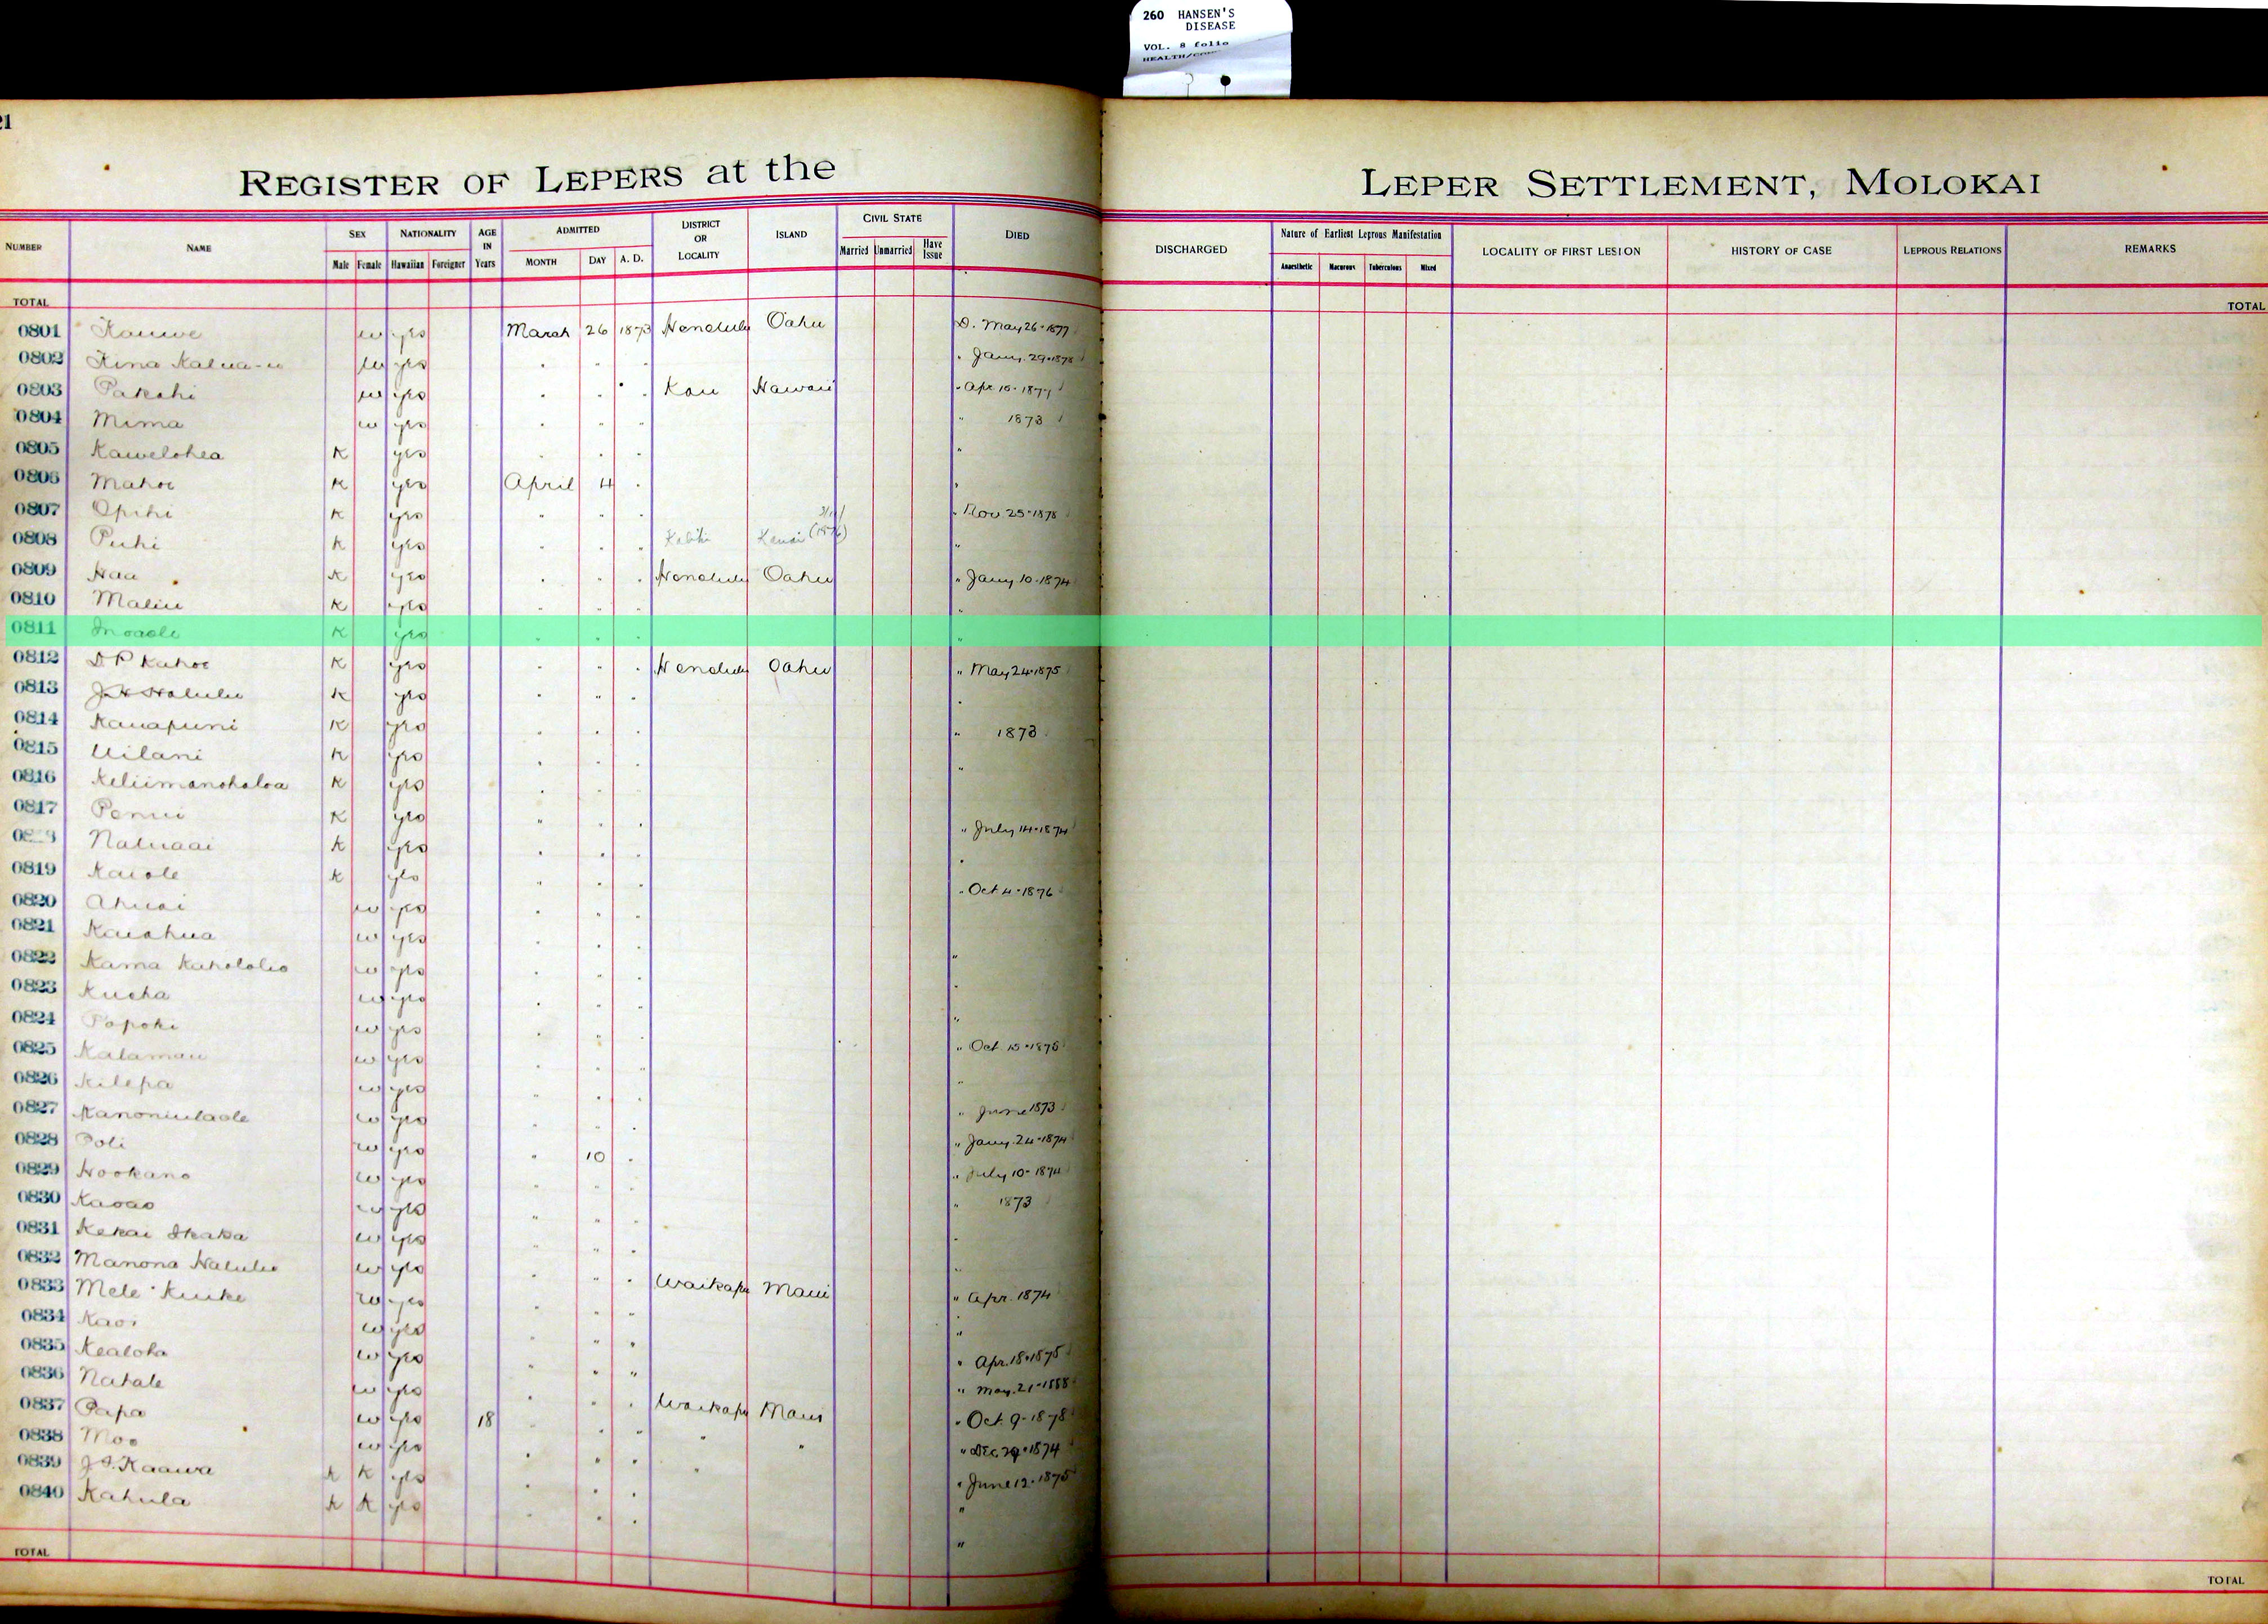 260 HANSEN'S
DISEASE
VOL. 8 folio
21
REGISTER OF LEPERS at the LEPER SETTLEMENT, MOLOKAI
NUMBER NAME SEX Male Female NATIONALITY Hawaiian Foreigner AGE IN Years ADMITTED MONTH DAY A. D. DISTRICT OR LOCALITY ISLAND CIVIL STATE Married Unmarried Have Issue DIED DISCHARGED Nature of Earliest Leprous Manifestation Anaesthetic Macurous Tuberculous Mixed LOCALITY OF FIRST LESION HISTORY OF CASE LEPROUS RELATIONS REMARKS
TOTAL TOTAL
0801 Kauwe w yes March 26 1873 Honolulu Oahu D. May 26-1877
0802 Kina Kalua-u w yes " " " " Jany. 29-1878
0803 Pakahi w yes " " " Kau Hawaii " Apr 15-1877
0804 Mima w yes " " " " 1873
0805 Kawelohea K yes " " " "
0806 Mahoe K yes April 4 " "
0807 Opihi K yes " " " " Nov 25-1878
0808 Puhi K yes " " " Kauai "
0809 Haa K yes " " " Honolulu Oahu " Jany 10-1874
0810 Maliu K yes " " " "
0811 Inoaole K yes " " " "
0812 D P Kahoe K yes " " " Honolulu Oahu " May 24-1875
0813 J H Halulu K yes " " " "
0814 Kauapuni K yes " " " " 1873
0815 Uilani K yes " " " "
0816 Keliimanohaloa K yes " " "
0817 Penui K yes " " " " July 14-1874
Naluaai K yes " " " "
0819 Kaiole K yes " " " " Oct 4-1876
0820 Ahuai w yes " " "
0821 Kaiahua w yes " " " "
0822 Kama Kahololio w yes " " " "
0823 Kueha w yes " " " "
0824 Popoki w yes " " " " Oct. 15-1875
0825 Kalamau w yes " " " "
0826 Kilepa w yes " " " " June 1873
0827 Kanoniulaole w yes " " " " Jany. 24-1874
0828 Poli w yes " 10 " " July 10-1874
0829 Hookano w yes " " " " 1873
0830 Kaoao w yes " " " "
0831 Kekai Ikaka w yes " " " "
0832 Manona Halulu w yes " " " Waikapu Maui " Apr. 1874
0833 Mele Kuike w yes " " " "
0834 Kaoi w yes " " " " Apr. 18-1875
0835 Kealoha w yes " " " " May. 21-1888
0836 Nahale w yes " " " Waikapu Maui " Oct. 9-1878
0837 Papa w yes 18 " " " " " " Dec 29-1874
0838 Moo w yes " " " " " June 12-1875
0839 J. S. Kaawa K K yes " " " "
0840 Kahula K K yes " " " "
TOTAL TOTAL